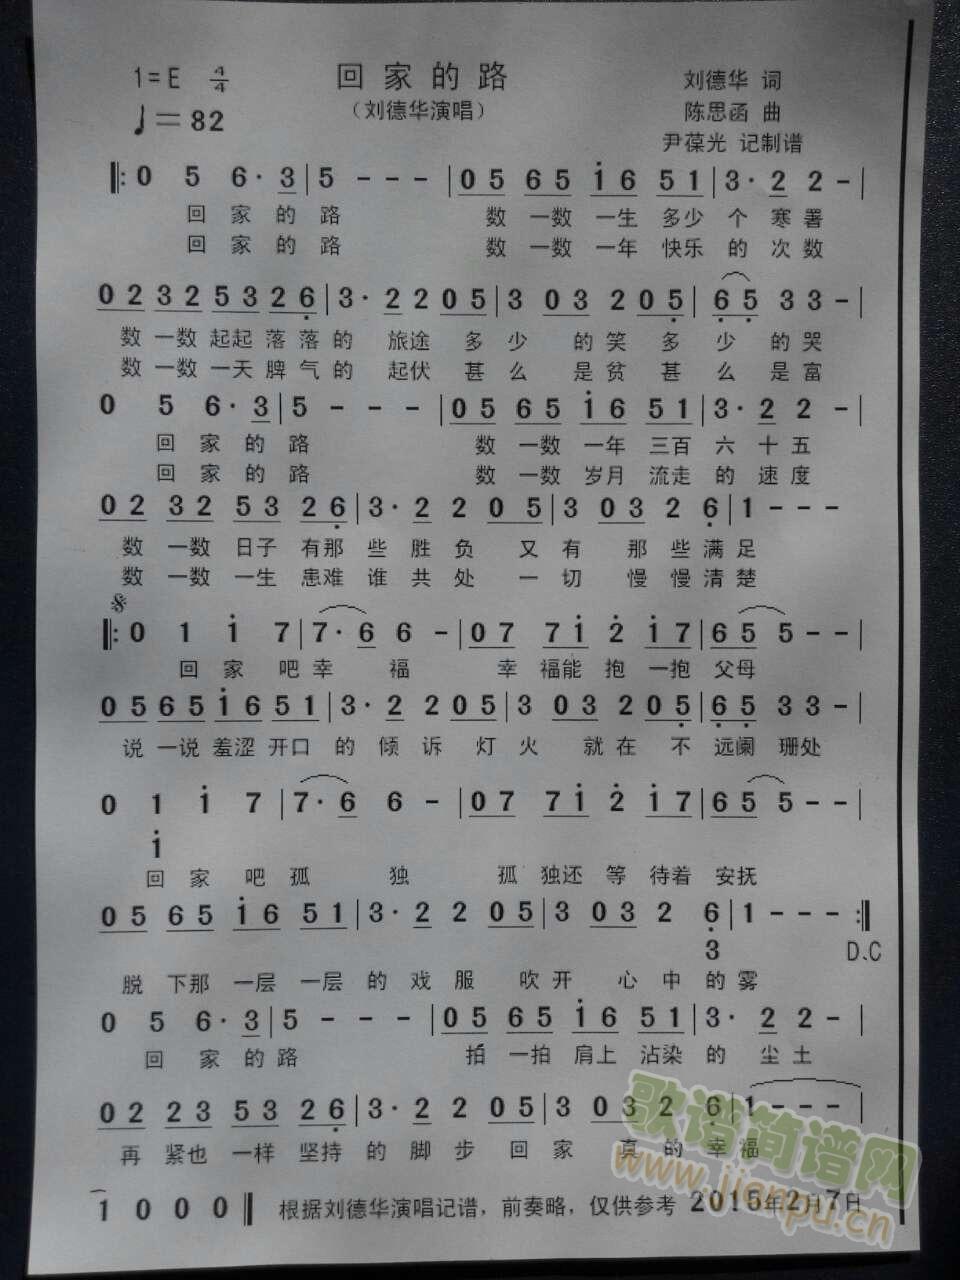 1=E 4/4 回家的路 刘德华 词
♩=82 （刘德华演唱） 陈思函 曲
尹葆光 记制谱
‖: 0 5 6· 3 | 5 - - - | 0 5 6 5 i 6 5 1 | 3· 2 2 - |
回 家 的 路 数 一数 一生 多少 个 寒 署
回 家 的 路 数 一数 一年 快乐 的 次 数
0 2 3 2 5 3 2 6̣ | 3· 2 2 0 5 | 3 0 3 2 0 5̣ | 6̣ 5̣ 3 3 - |
数 一数 起起 落 落 的 旅途 多 少 的 笑 多 少 的 哭
数 一数 一天 脾 气 的 起伏 甚 么 是 贫 甚 么 是 富
0 5 6· 3 | 5 - - - | 0 5 6 5 i 6 5 1 | 3· 2 2 - |
回 家 的 路 数 一数 一年 三百 六 十 五
回 家 的 路 数 一数 岁月 流走 的 速 度
0 2 3 2 5 3 2 6̣ | 3· 2 2 0 5 | 3 0 3 2 6̣ | 1 - - -
数 一数 日子 有那 些 胜 负 又 有 那 些 满 足
数 一数 一生 患难 谁 共 处 一 切 慢 慢 清 楚
𝄋
‖: 0 1 i 7 | 7· 6 6 - | 0 7 7 i 2̇ i 7 | 6 5 5 - - |
回 家 吧 幸 福 幸 福能 抱 一抱 父母
0 5 6 5 i 6 5 1 | 3· 2 2 0 5 | 3 0 3 2 0 5̣ | 6̣ 5̣ 3 3 - |
说 一说 羞涩 开口 的 倾 诉 灯 火 就 在 不 远阑 珊处
0 1 i 7 | 7· 6 6 - | 0 7 7 i 2̇ i 7 | 6 5 5 - - |
i
回 家 吧 孤 独 孤 独还 等 待着 安抚
0 5 6 5 i 6 5 1 | 3· 2 2 0 5 | 3 0 3 2 6̣ | 1 - - - :‖
3 D.C
脱 下那 一层 一层 的 戏 服 吹 开 心 中 的 雾
0 5 6· 3 | 5 - - - | 0 5 6 5 i 6 5 1 | 3· 2 2 - |
回 家 的 路 拍 一拍 肩上 沾染 的 尘 土
0 2 2 3 5 3 2 6̣ | 3· 2 2 0 5 | 3 0 3 2 6̣ | 1 - - - |
再 紧也 一样 坚持 的 脚 步 回 家 真 的 幸 福
1 0 0 0 ‖ 根据刘德华演唱记谱，前奏略，仅供参考 2015年2月7日
歌谱简谱网
www.jianpu.cn